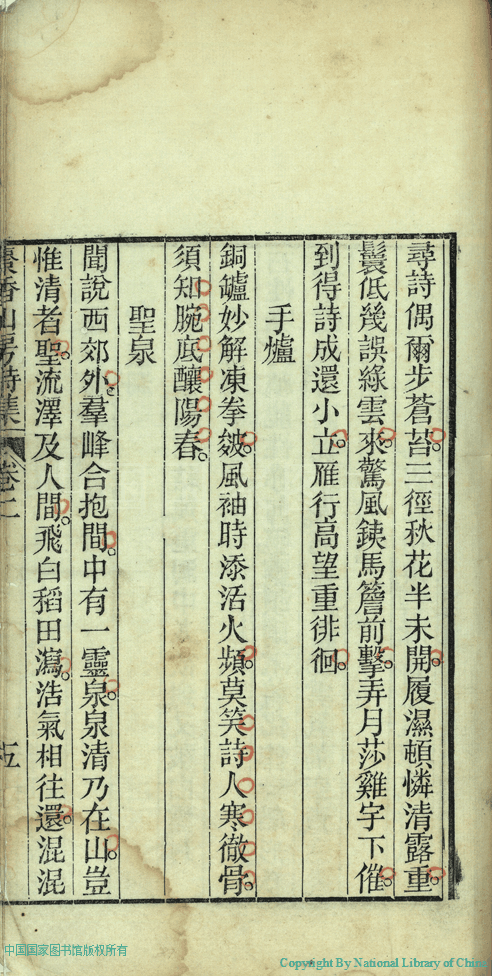 尋詩偶爾步蒼苔。三徑秋花半未開。履濕頓憐清露重。
鬟低幾誤綠雲來。驚風鐵馬簷前擊。弄月莎雞宇下催。
到得詩成還小立。雁行高望重徘徊。
手爐
銅罏妙解凍拳皴。風袖時添活火頻。莫笑詩人寒徹骨。
須知腕底釀陽春。
聖泉
聞說西郊外。羣峰合抱間。中有一靈泉。泉清乃在山。豈
惟清者聖。流澤及人間。飛白稻田瀉。浩氣相往還。混混
香山房詩集 卷二 五
中国国家图书馆版权所有
Copyright By National Library of China